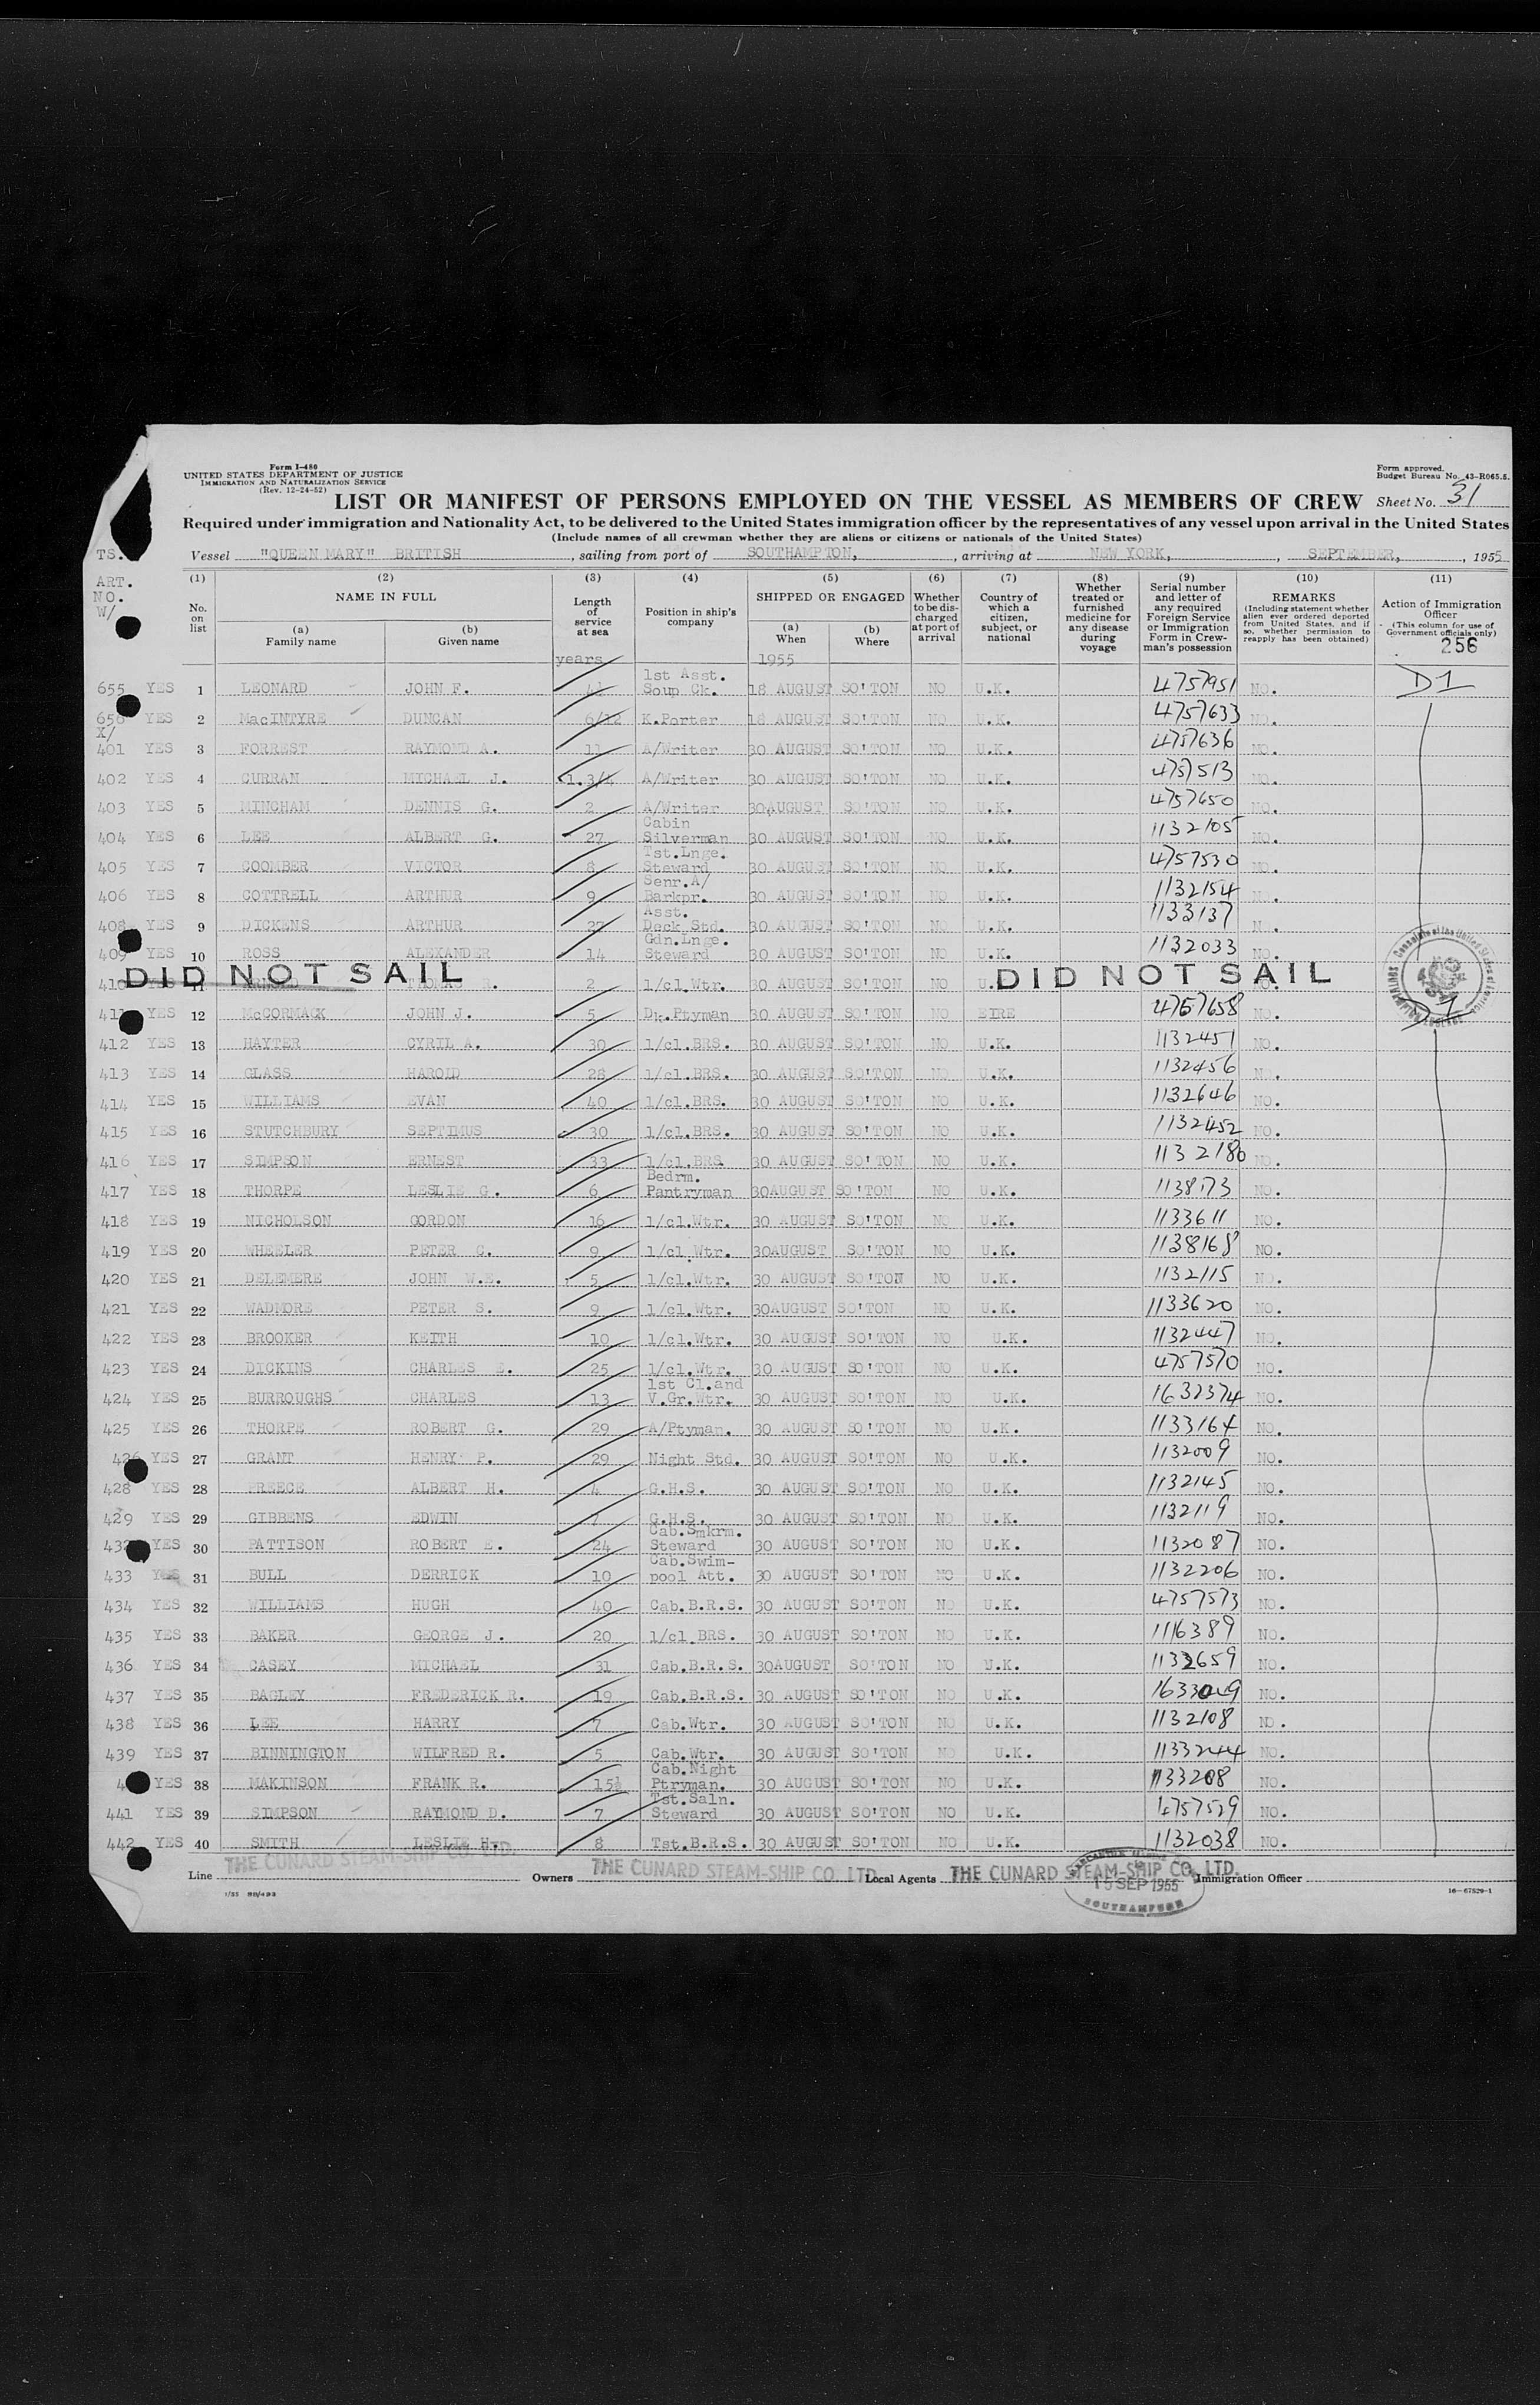 Form I-480
UNITED STATES DEPARTMENT OF JUSTICE
IMMIGRATION AND NATURALIZATION SERVICE
(Rev. 12-24-52)
Form approved.
Budget Bureau No. 43-R065.5.
LIST OR MANIFEST OF PERSONS EMPLOYED ON THE VESSEL AS MEMBERS OF CREW Sheet No. 31
Required under immigration and Nationality Act, to be delivered to the United States immigration officer by the representatives of any vessel upon arrival in the United States
(Include names of all crewman whether they are aliens or citizens or nationals of the United States)
TS. Vessel "QUEEN MARY" BRITISH, sailing from port of SOUTHAMPTON, arriving at NEW YORK, SEPTEMBER, 1955
ART. NO. W/
(1) No. on list
(2) NAME IN FULL (a) Family name (b) Given name
(3) Length of service at sea
(4) Position in ship's company
(5) SHIPPED OR ENGAGED (a) When (b) Where
(6) Whether to be discharged at port of arrival
(7) Country of which a citizen, subject, or national
(8) Whether treated or furnished medicine for any disease during voyage
(9) Serial number and letter of any required Foreign Service or Immigration Form in Crewman's possession
(10) REMARKS (Including statement whether alien ever ordered deported from United States, and if so, whether permission to reapply has been obtained)
(11) Action of Immigration Officer (This column for use of Government officials only)
256
years 1955
655 YES 1 LEONARD JOHN F. 1st Asst. Soup Ck. 18 AUGUST SO'TON NO U.K. 4757951 NO. D1
656 YES 2 MacINTYRE DUNCAN 6/12 K.Porter 18 AUGUST SO'TON NO U.K. 4757633 NO.
X/
401 YES 3 FORREST RAYMOND A. 11 A/Writer 30 AUGUST SO'TON NO U.K. 4757636 NO.
402 YES 4 CURRAN MICHAEL J. 1.3/4 A/Writer 30 AUGUST SO'TON NO U.K. 4757513 NO.
403 YES 5 MINCHAM DENNIS G. 2 A/Writer 30 AUGUST SO'TON NO U.K. 4757650 NO.
404 YES 6 LEE ALBERT G. 27 Cabin Silverman 30 AUGUST SO'TON NO U.K. 1132105 NO.
405 YES 7 COOMBER VICTOR 8 Tst.Lnge. Steward 30 AUGUST SO'TON NO U.K. 4757530 NO.
406 YES 8 COTTRELL ARTHUR 9 Senr.A/ Barkpr. 30 AUGUST SO'TON NO U.K. 1132154 NO.
408 YES 9 DICKENS ARTHUR 27 Asst. Deck Std. 30 AUGUST SO'TON NO U.K. 1133137 N.
409 YES 10 ROSS ALEXANDER 14 Gdn.Lnge. Steward 30 AUGUST SO'TON NO U.K. 1132033 NO.
DID NOT SAIL DID NOT SAIL
410 YES 11 2 1/cl.Wtr. 30 AUGUST SO'TON NO U.
411 YES 12 McCORMACK JOHN J. 5 Dk.Ptyman 30 AUGUST SO'TON NO EIRE 4757658 NO. D1
412 YES 13 HAYTER CYRIL A. 30 1/cl.BRS. 30 AUGUST SO'TON NO U.K. 1132451 NO.
413 YES 14 GLASS HAROLD 28 1/cl.BRS. 30 AUGUST SO'TON NO U.K. 1132456 NO.
414 YES 15 WILLIAMS EVAN 40 1/cl.BRS. 30 AUGUST SO'TON NO U.K. 1132646 NO.
415 YES 16 STUTCHBURY SEPTIMUS 30 1/cl.BRS. 30 AUGUST SO'TON NO U.K. 1132452 NO.
416 YES 17 SIMPSON ERNEST 33 1/cl.BRS 30 AUGUST SO'TON NO U.K. 1132180 NO.
417 YES 18 THORPE LESLIE G. 6 Bedrm. Pantryman 30AUGUST SO'TON NO U.K. 1138173 NO.
418 YES 19 NICHOLSON GORDON 16 1/cl.Wtr. 30 AUGUST SO'TON NO U.K. 1133611 NO.
419 YES 20 WHEELER PETER C. 9 1/cl.Wtr. 30AUGUST SO'TON NO U.K. 1138168 NO.
420 YES 21 DELEMERE JOHN W.E. 5 1/cl.Wtr. 30 AUGUST SO'TON NO U.K. 1132115 NO.
421 YES 22 WADMORE PETER S. 9 1/cl.Wtr. 30AUGUST SO'TON NO U.K. 1133620 NO.
422 YES 23 BROOKER KEITH 10 1/cl.Wtr. 30 AUGUST SO'TON NO U.K. 1132447 NO.
423 YES 24 DICKINS CHARLES E. 25 1/cl.Wtr. 30 AUGUST SO'TON NO U.K. 4757570 NO.
424 YES 25 BURROUGHS CHARLES 13 1st Cl.and V.Gr.Wtr. 30 AUGUST SO'TON NO U.K. 1632374 NO.
425 YES 26 THORPE ROBERT G. 29 A/Ptyman. 30 AUGUST SO'TON NO U.K. 1133164 NO.
426 YES 27 GRANT HENRY P. 29 Night Std. 30 AUGUST SO'TON NO U.K. 1132009 NO.
428 YES 28 PREECE ALBERT H. 4 G.H.S. 30 AUGUST SO'TON NO U.K. 1132145 NO.
429 YES 29 GIBBENS EDWIN 7 G.H.S. 30 AUGUST SO'TON NO U.K. 1132119 NO.
432 YES 30 PATTISON ROBERT E. 24 Cab.Smkrm. Steward 30 AUGUST SO'TON NO U.K. 1132087 NO.
433 YES 31 BULL DERRICK 10 Cab.Swim-pool Att. 30 AUGUST SO'TON NO U.K. 1132206 NO.
434 YES 32 WILLIAMS HUGH 40 Cab.B.R.S. 30 AUGUST SO'TON NO U.K. 4757573 NO.
435 YES 33 BAKER GEORGE J. 20 1/cl.BRS. 30 AUGUST SO'TON NO U.K. 1116389 NO.
436 YES 34 CASEY MICHAEL 31 Cab.B.R.S. 30AUGUST SO'TON NO U.K. 1132659 NO.
437 YES 35 BAGLEY FREDERICK R. 19 Cab.B.R.S. 30 AUGUST SO'TON NO U.K. 1633049 NO.
438 YES 36 LEE HARRY 7 Cab.Wtr. 30 AUGUST SO'TON NO U.K. 1132108 NO.
439 YES 37 BINNINGTON WILFRED R. 5 Cab.Wtr. 30 AUGUST SO'TON NO U.K. 1133244 NO.
4 YES 38 MAKINSON FRANK R. 15½ Cab.Night Ptryman. 30 AUGUST SO'TON NO U.K. 1133208 NO.
441 YES 39 SIMPSON RAYMOND D. 7 Tst.Saln. Steward 30 AUGUST SO'TON NO U.K. 4757529 NO.
442 YES 40 SMITH LESLIE H. 8 Tst.B.R.S. 30 AUGUST SO'TON NO U.K. 1132038 NO.
Line THE CUNARD STEAM-SHIP CO. LTD. Owners THE CUNARD STEAM-SHIP CO. LTD. Local Agents THE CUNARD STEAM-SHIP CO. LTD. Immigration Officer
15 SEP 1955
SOUTHAMPTON
16-67529-1